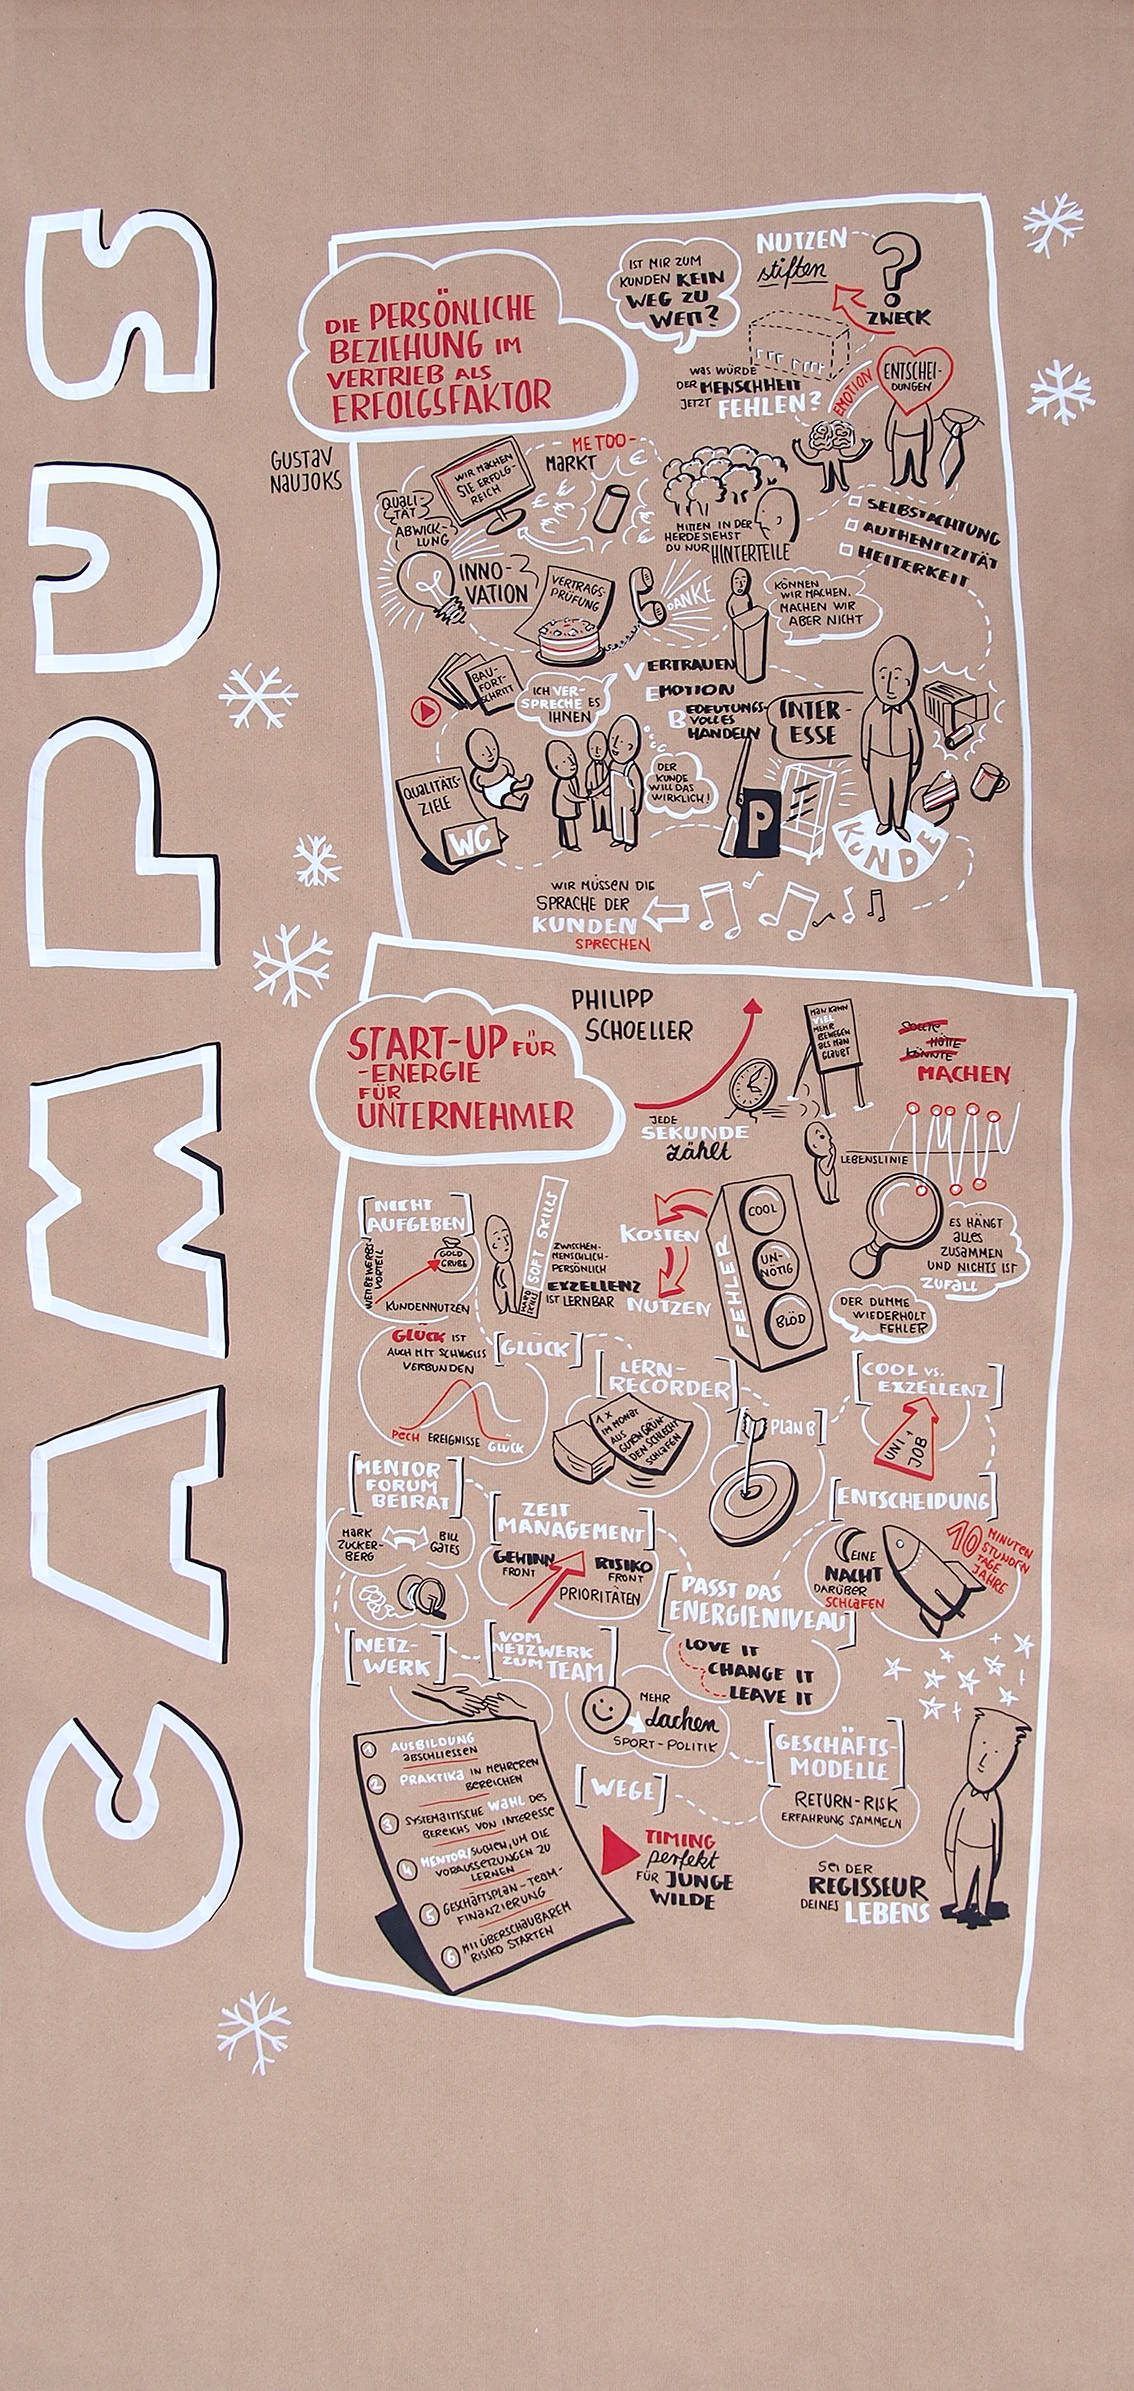 CAMPUS
DIE PERSÖNLICHE
BEZIEHUNG IM
VERTRIEB ALS
ERFOLGSFAKTOR
GUSTAV
NAUJOKS
IST MIR ZUM
KUNDEN KEIN
WEG ZU
WEIT?
NUTZEN
stiften
?
ZWECK
WAS WÜRDE
DER MENSCHHEIT
JETZT FEHLEN?
EMOTION
ENTSCHEI-
DUNGEN
ME TOO-
MARKT
WIR MACHEN
SIE ERFOLG-
REICH
QUALI-
TÄT
ABWICK-
LUNG
€ € € € €
MITTEN IN DER
HERDE SIEHST
DU NUR HINTERTEILE
SELBSTACHTUNG
AUTHENTIZITÄT
HEITERKEIT
INNO-
VATION
VERTRAGS-
PRÜFUNG
DANKE
KÖNNEN
WIR MACHEN,
MACHEN WIR
ABER NICHT
BAU-
FORT-
SCHRITT
ICH VER-
SPRECHE ES
IHNEN
VERTRAUEN
EMOTION
BEDEUTUNGS-
VOLLES
HANDELN
INTER-
ESSE
QUALITÄTS-
ZIELE
WC
DER
KUNDE
WILL DAS
WIRKLICH!
P
KUNDE
WIR MÜSSEN DIE
SPRACHE DER
KUNDEN
SPRECHEN
PHILIPP
SCHOELLER
START-UP FÜR
-ENERGIE
FÜR
UNTERNEHMER
JEDE
SEKUNDE
zählt
MAN KANN
VIEL
MEHR
BEWEGEN
ALS MAN
GLAUBT
SOLLTE
HÄTTE
KÖNNTE
MACHEN
LEBENSLINIE
[NICHT
AUFGEBEN]
WETTBEWERBS-
VORTEIL
GOLD
GRUBE
KUNDENNUTZEN
SOFT SKILLS
HARD
SKILLS
ZWISCHEN-
MENSCHLICH-
PERSÖNLICH
EXZELLENZ
IST LERNBAR
KOSTEN
NUTZEN
FEHLER
COOL
UN-
NÖTIG
BLÖD
ES HÄNGT
ALLES
ZUSAMMEN
UND NICHTS IST
ZUFALL
DER DUMME
WIEDERHOLT
FEHLER
GLÜCK IST
AUCH MIT SCHWEISS
VERBUNDEN
[GLÜCK]
PECH EREIGNISSE GLÜCK
[LERN-
RECORDER]
1 X
IM MONAT
AUS
GUTEN GRÜN-
DEN SCHLECHT
SCHLAFEN
[PLAN B]
[COOL VS.
EXZELLENZ]
UNI +
JOB
[MENTOR
FORUM
BEIRAT]
MARK
ZUCKER-
BERG
BILL
GATES
[ZEIT
MANAGEMENT]
GEWINN
FRONT
RISIKO
FRONT
PRIORITÄTEN
[ENTSCHEIDUNG]
EINE
NACHT
DARÜBER
SCHLAFEN
10 MINUTEN
STUNDEN
TAGE
JAHRE
[PASST DAS
ENERGIENIVEAU]
LOVE IT
CHANGE IT
LEAVE IT
[NETZ-
WERK]
[VOM
NETZWERK
ZUM TEAM]
MEHR
Lachen
SPORT-POLITIK
[GESCHÄFTS-
MODELLE]
RETURN-RISK
ERFAHRUNG SAMMELN
[WEGE]
1 AUSBILDUNG
ABSCHLIESSEN
2 PRAKTIKA IN MEHREREN
BEREICHEN
3 SYSTEMATISCHE WAHL DES
BEREICHS VON INTERESSE
4 MENTOR/SUCHEN, UM DIE
VORAUSSETZUNGEN ZU
LERNEN
5 GESCHÄFTSPLAN-TEAM-
FINANZIERUNG
6 MIT ÜBERSCHAUBAREM
RISIKO STARTEN
TIMING
perfekt
FÜR JUNGE
WILDE
SEI DER
REGISSEUR
DEINES LEBENS